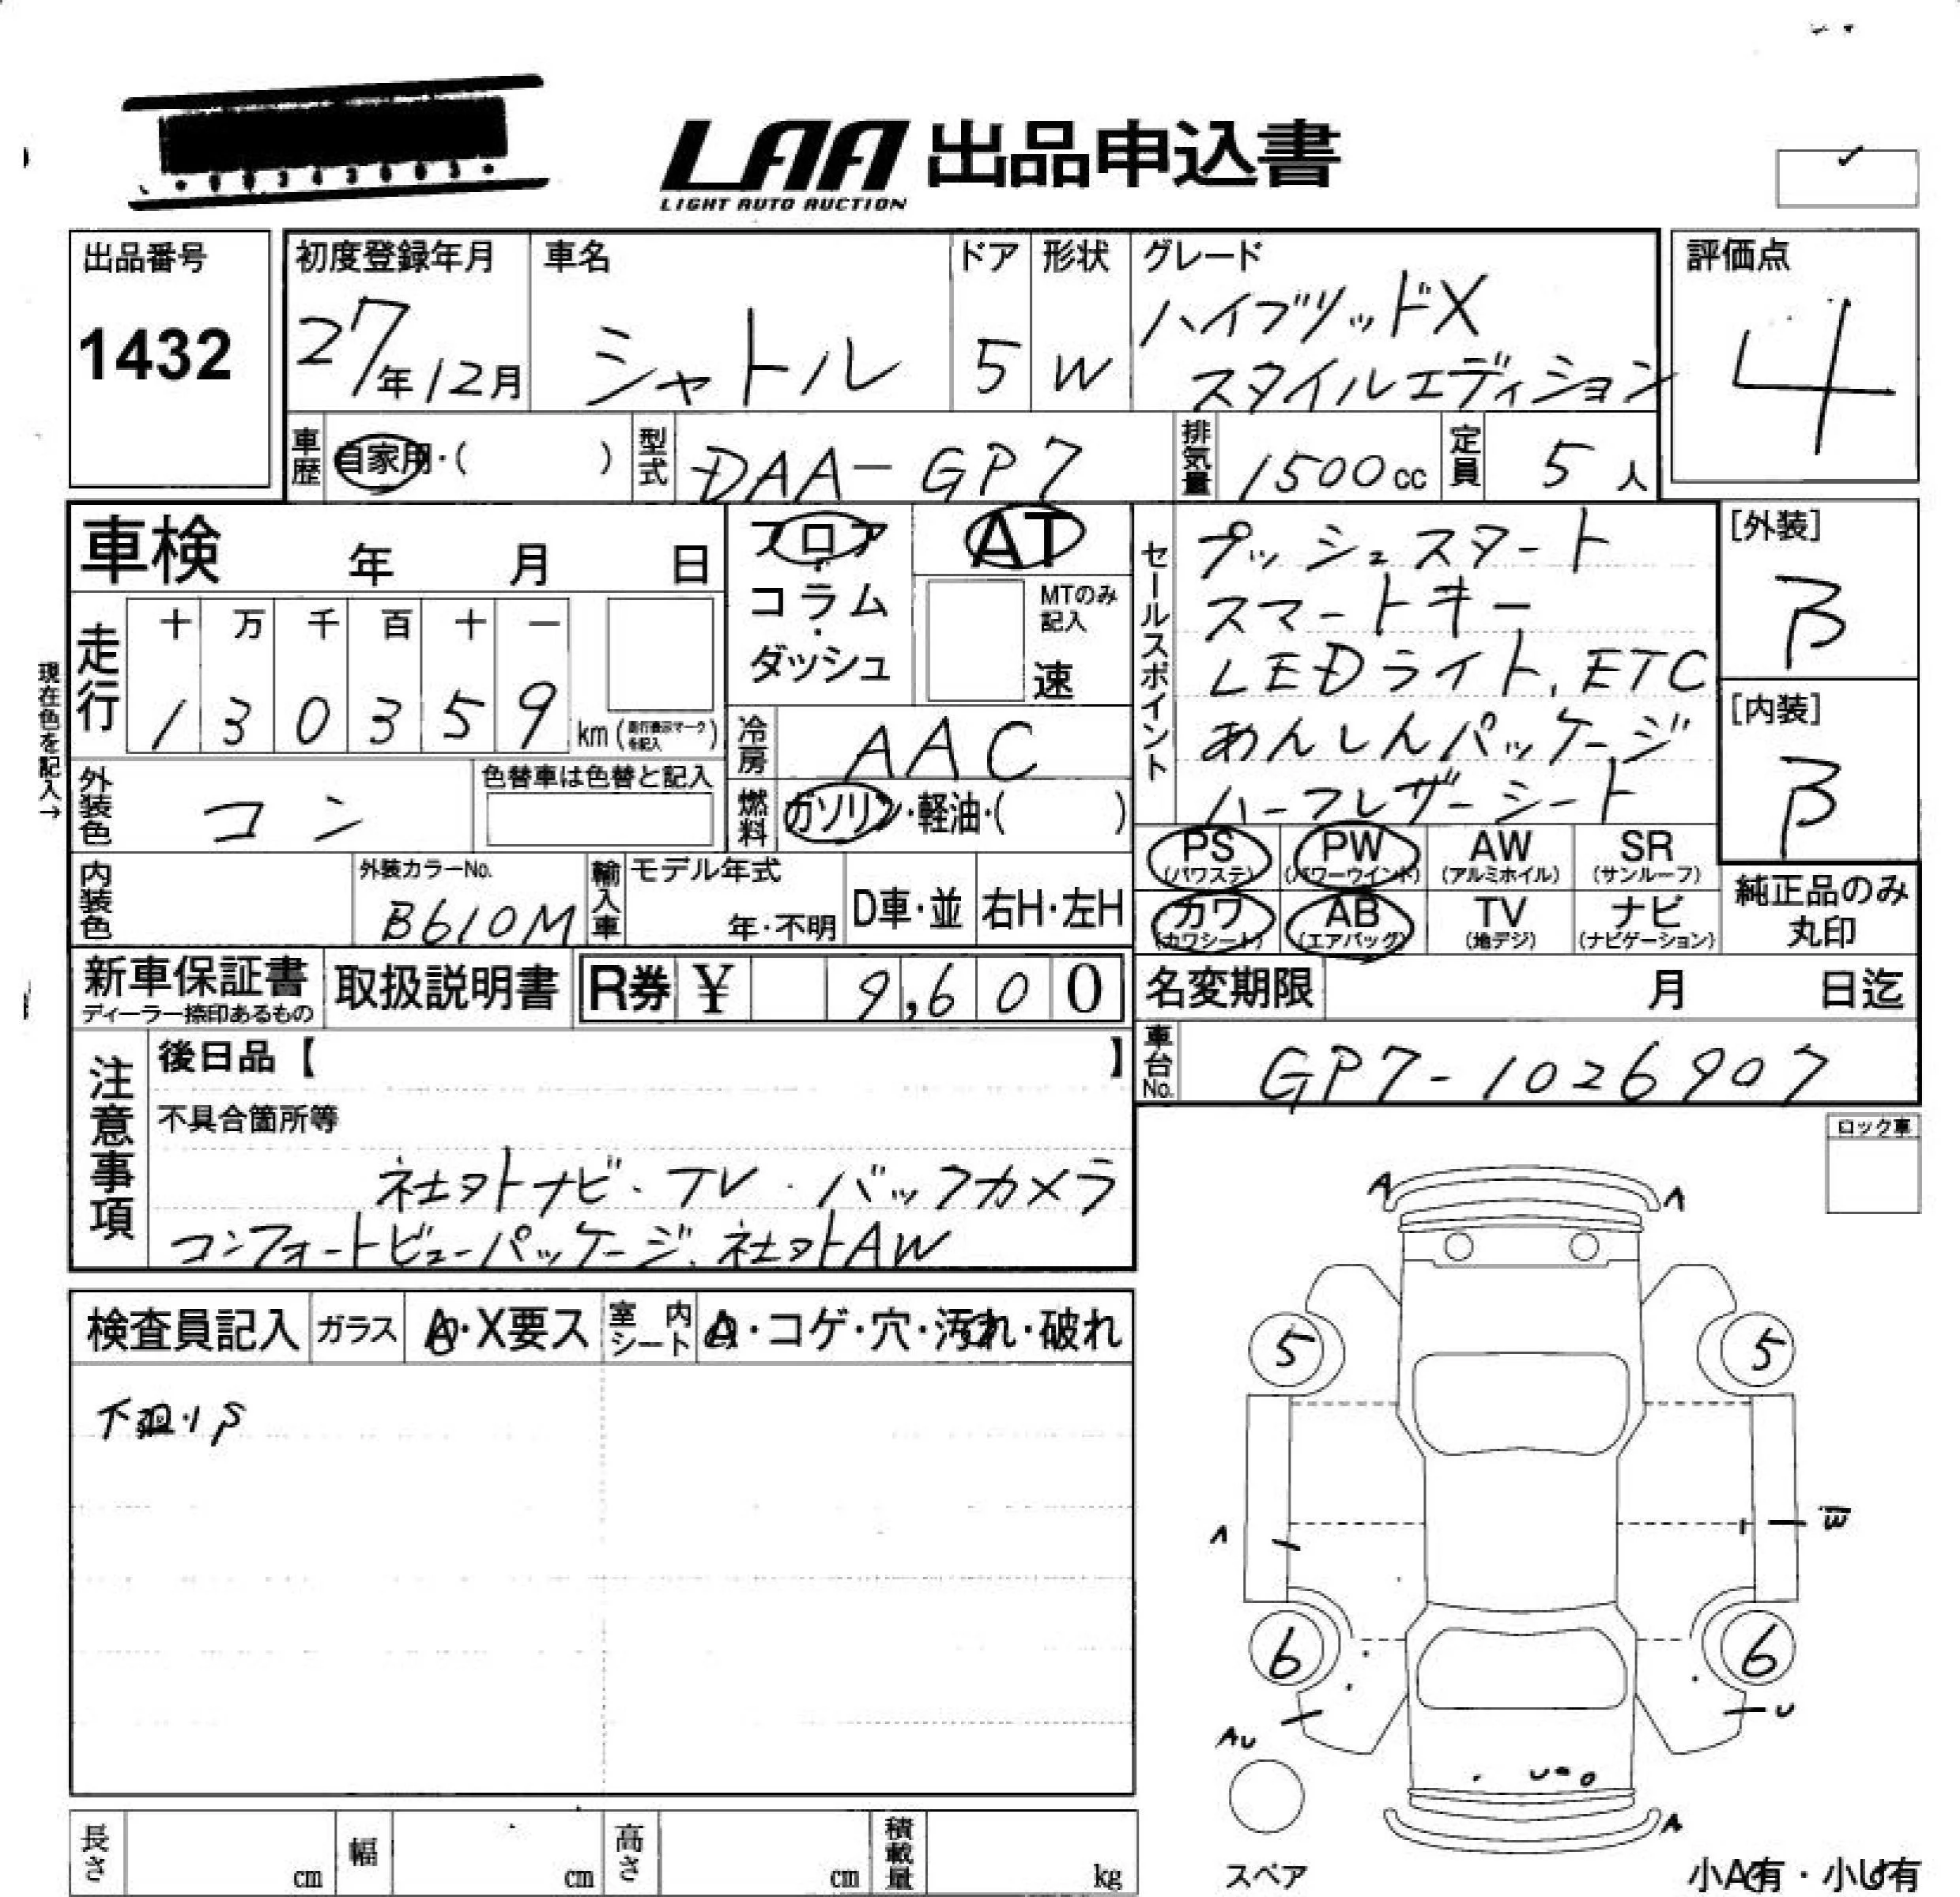 LAA 出品申込書
LIGHT AUTO AUCTION
出品番号
1432
初度登録年月
27年12月
車名
シャトル
ドア
5
形状
W
グレード
ハイブリッドX
スタイルエディション
評価点
4
車歴 自家用・( )
型式 DAA-GP7
排気量 1500cc
定員 5人
車検 年 月 日
フロア
・
コラム
・
ダッシュ
AT
MTのみ
記入
速
セールスポイント
プッシュスタート
スマートキー
LEDライト、ETC
あんしんパッケージ
ハーフレザーシート
[外装]
B
[内装]
B
現在色を記入→
走行
十 万 千 百 十 一
1 3 0 3 5 9 km (走行表示マークを記入)
冷房 AAC
外装色 コン
色替車は色替と記入
燃料 ガソリン・軽油・( )
内装色
外装カラーNo.
B610M
輸入車
モデル年式
年・不明
D車・並
右H・左H
PS
(パワステ)
PW
(パワーウインド)
AW
(アルミホイル)
SR
(サンルーフ)
カワ
(カワシート)
AB
(エアバッグ)
TV
(地デジ)
ナビ
(ナビゲーション)
純正品のみ
丸印
新車保証書
ディーラー捺印あるもの
取扱説明書
R券 ¥ 9,600
名変期限 月 日迄
車台No. GP7-1026907
注意事項
後日品【 】
不具合箇所等
社外ナビ・TV・バックカメラ
コンフォートビューパッケージ、社外AW
ロック車
検査員記入
ガラス
A・X要ス
室内シート
A・コゲ・穴・汚れ・破れ
下廻りS
A A
5 5
A W
6 6
AU U
U
A
スペア
小A有・小U有
長さ cm
幅 cm
高さ cm
積載量 kg